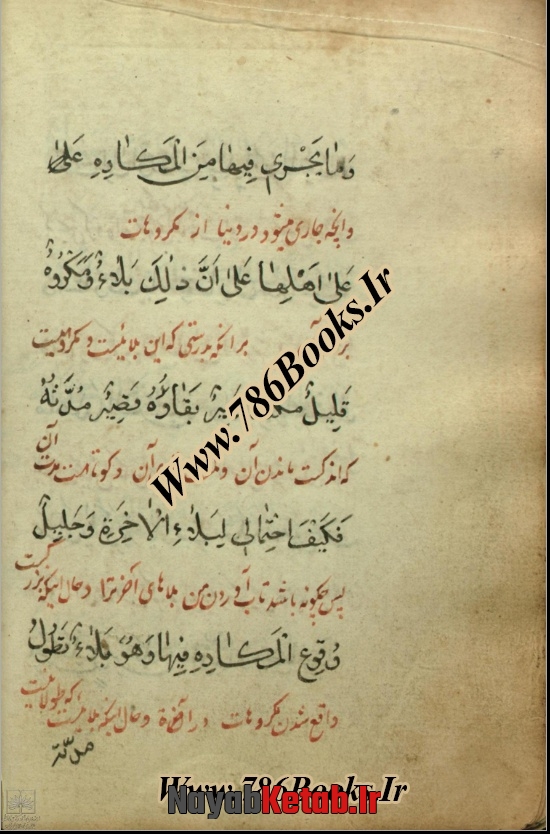 وَمٰا يَجْرِي فِيهٰا مِنَ الْمَكٰارِهِ عَلىٰ
وانچه جاری میشود در دنیا از مکروهات
عَلىٰ اَهْلِهٰا عَلىٰ اَنَّ ذٰلِكَ بَلٰاءٌ وَمَكْرُوهٌ
بر برانکه بدرستی که این بلائیست و مکروهیست
قَلِيلٌ بَقٰاؤُهُ قَصِيرٌ مُدَّتُهُ
که اندکست ماندن آن آن و کوتاهست مدت آن
فَكَيْفَ احْتِمٰالِي لِبَلٰاءِ الْاٰخِرَةِ وَجَلِيلِ
پس چگونه باشد تاب آوردن من بلاهای آخرة را و حال اینکه بزرگست
وُقُوعِ الْمَكٰارِهِ فِيهٰا وَهُوَ بَلٰاءٌ تَطُولُ
واقع شدن مکروهات در آخرة و حال اینکه بلائیست که طولانیست
مدّته
Www.786Books.Ir
Www.786Books.Ir
NayabKetab.Ir